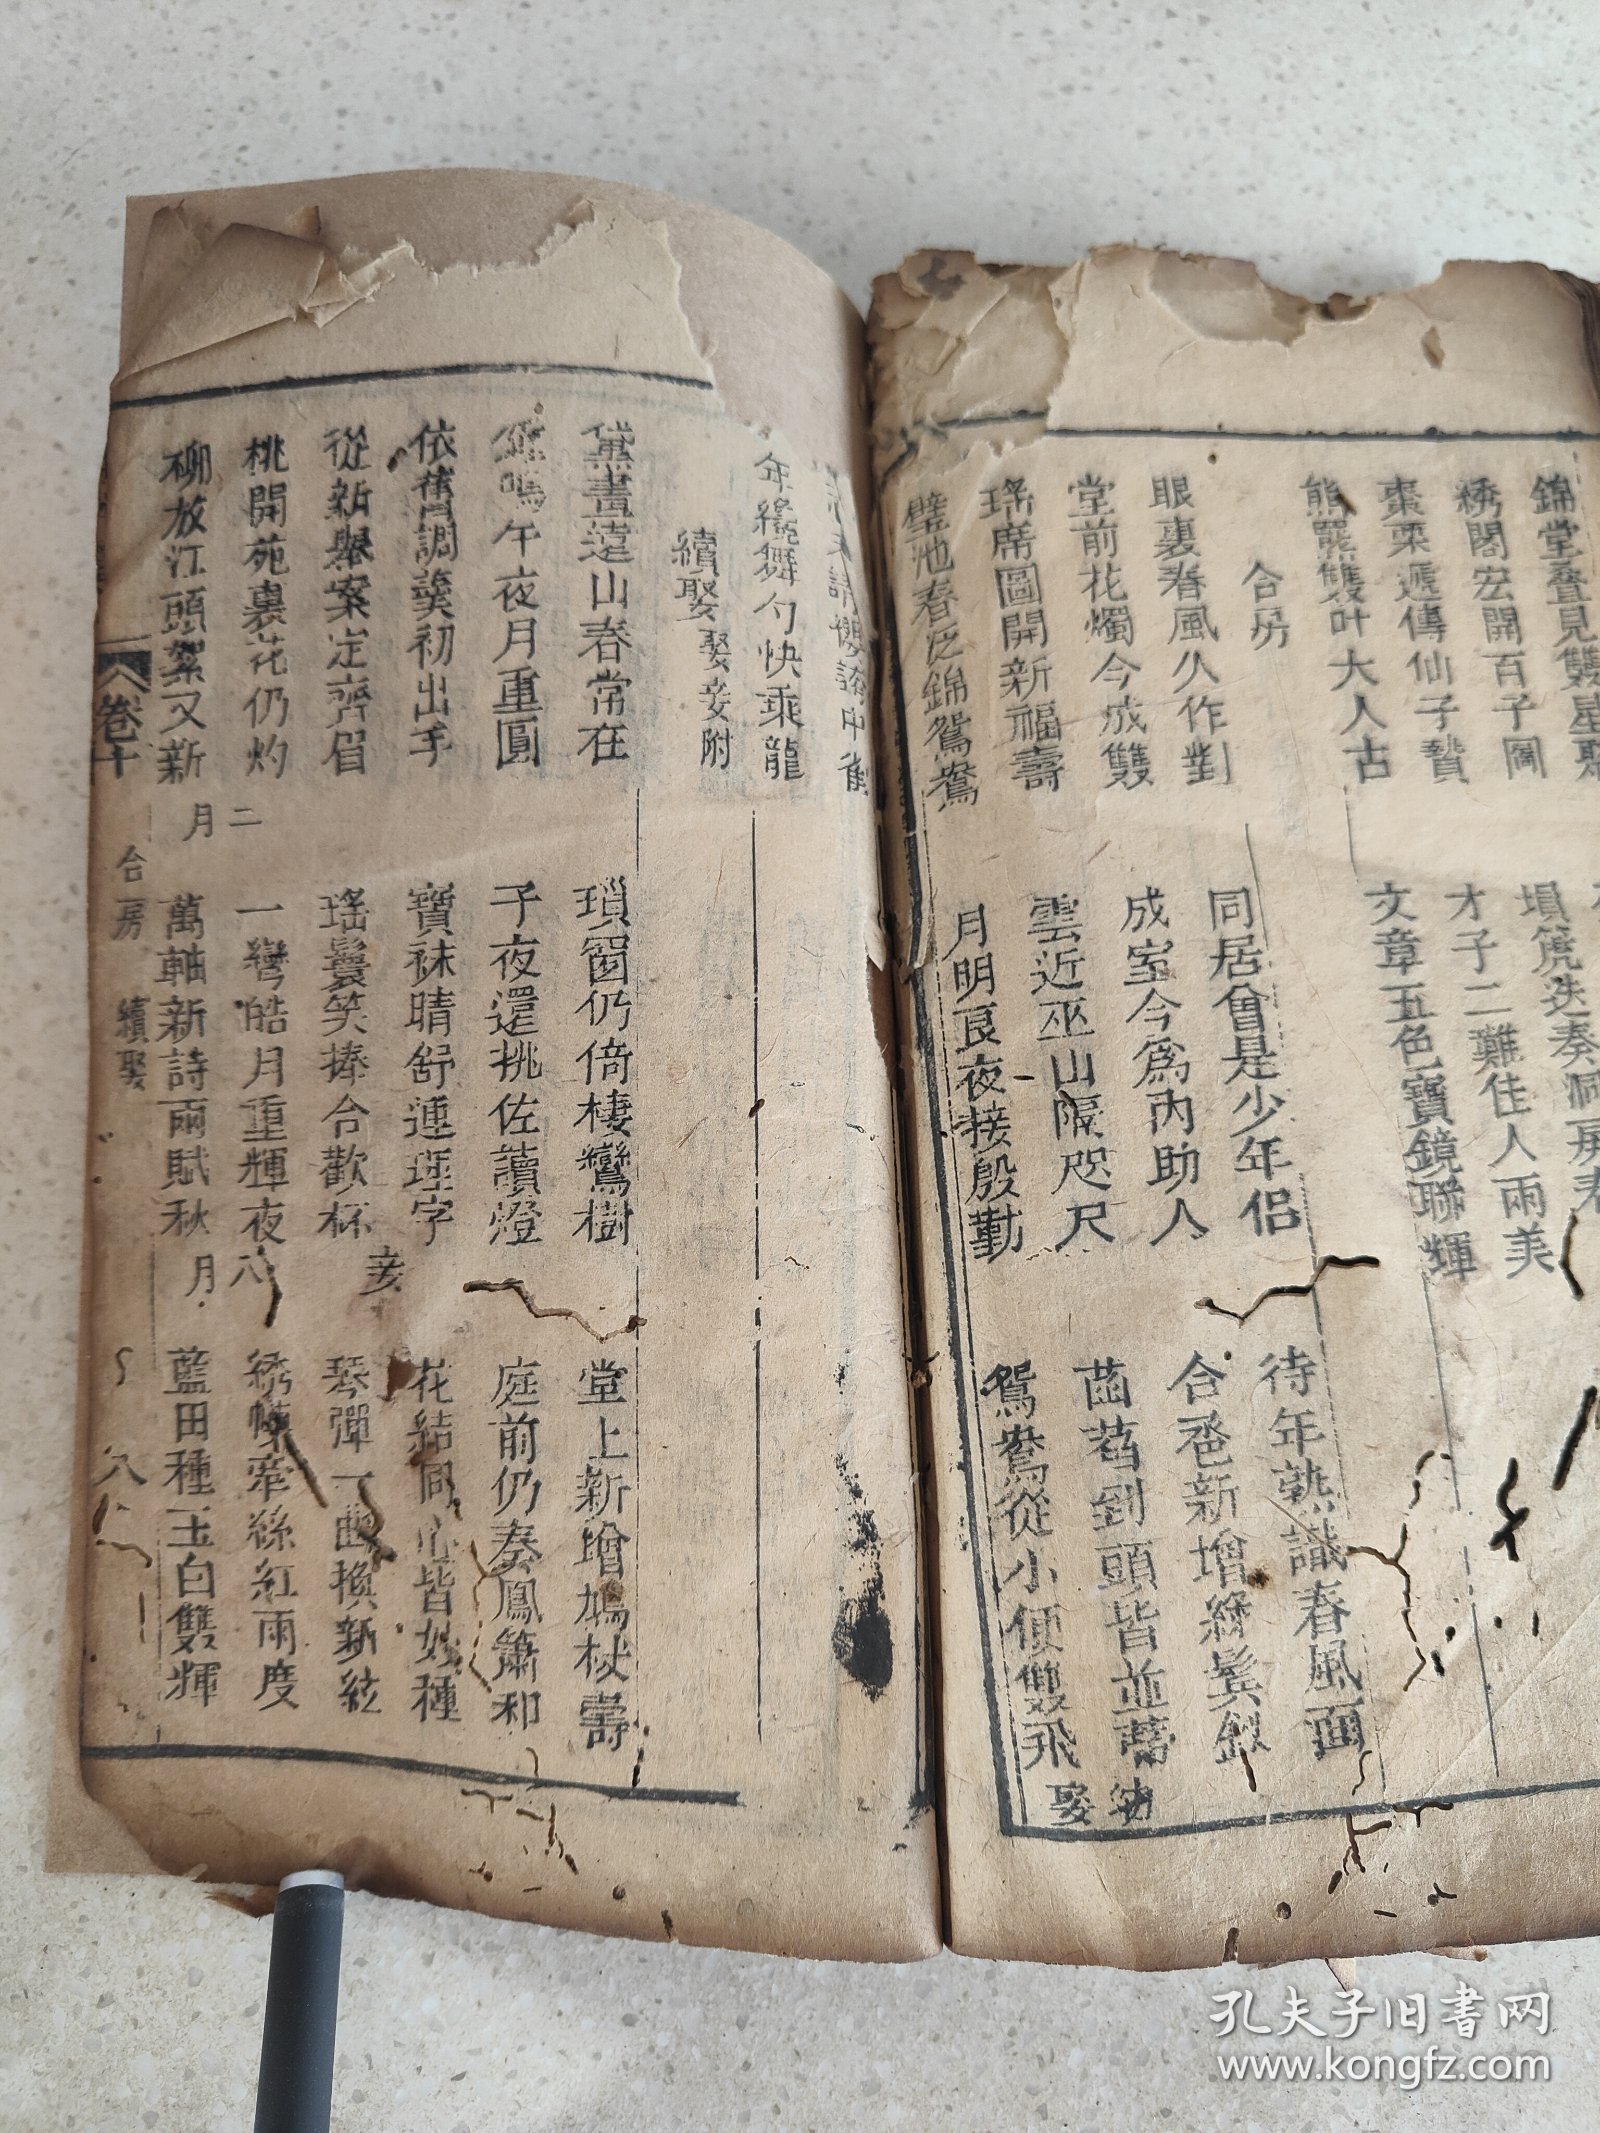 錦堂疊見雙星聚
綉閣宏開百子圖
棗栗遞傳仙子贄
熊羆雙叶大人占
塤箎迭奏洞房春
才子二難佳人兩美
文章五色寶鏡聯輝
合房
眼裏春風久作對
堂前花燭今成雙
瑤席圖開新福壽
璧池春泛錦鴛鴦
同居曾是少年侶
成室今為內助人
雲近巫山隔咫尺
月明良夜接殷勤
待年熟識春風面
合卺新增綠鬢釵
菡萏到頭皆並蒂
鴛鴦從小便雙飛
妾
年纔舞勺快乘龍
續娶 娶妾附
黛畫遠山春常在
午夜月重圓
依舊調羹初出手
從新舉案定齊眉
桃開苑裏花仍灼
柳放江頭絮又新
二月
瑣窗仍倚棲鸞樹
子夜還挑佐讀燈
寶襪晴舒連理字
瑤鬟笑捧合歡杯
妾
一彎皓月重輝夜
萬軸新詩兩賦秋
八月
堂上新增鳩杖壽
庭前仍奏鳳簫和
花結同心皆妙種
琴彈一曲換新絃
綉幙牽絲紅兩度
藍田種玉白雙輝
卷十
合房 續娶
八
孔夫子旧书网
www.kongfz.com